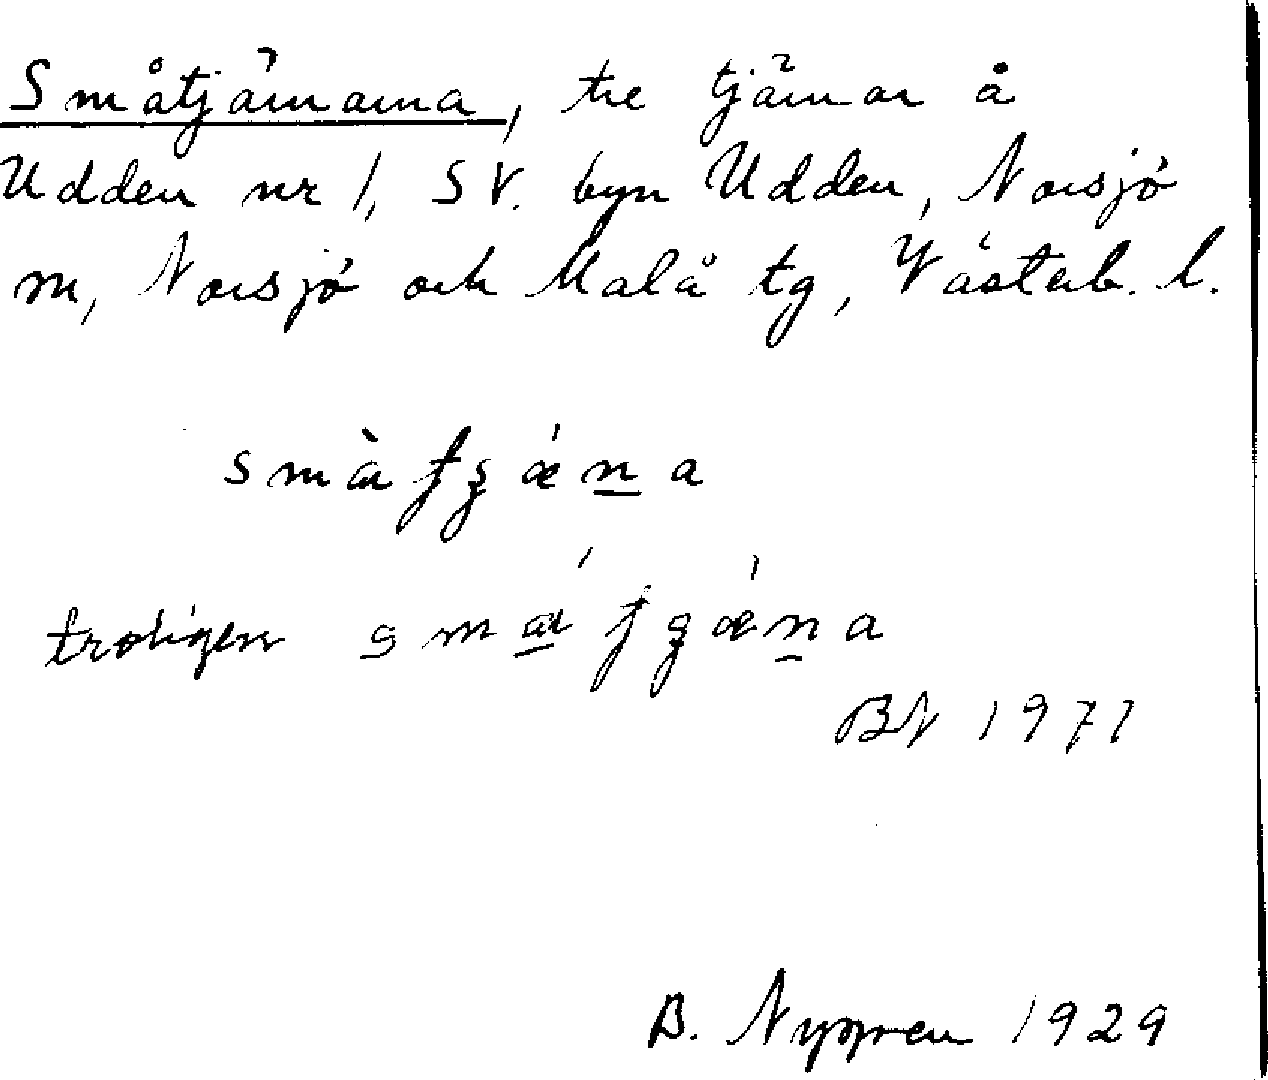 Småtjärnarna, tre tjärnar å
Udden nr 1, SV. byn Udden, Norsjö
m, Norsjö och Malå tg, Västerb. l.
troligen
BN 1971
B. Nyggren 1929